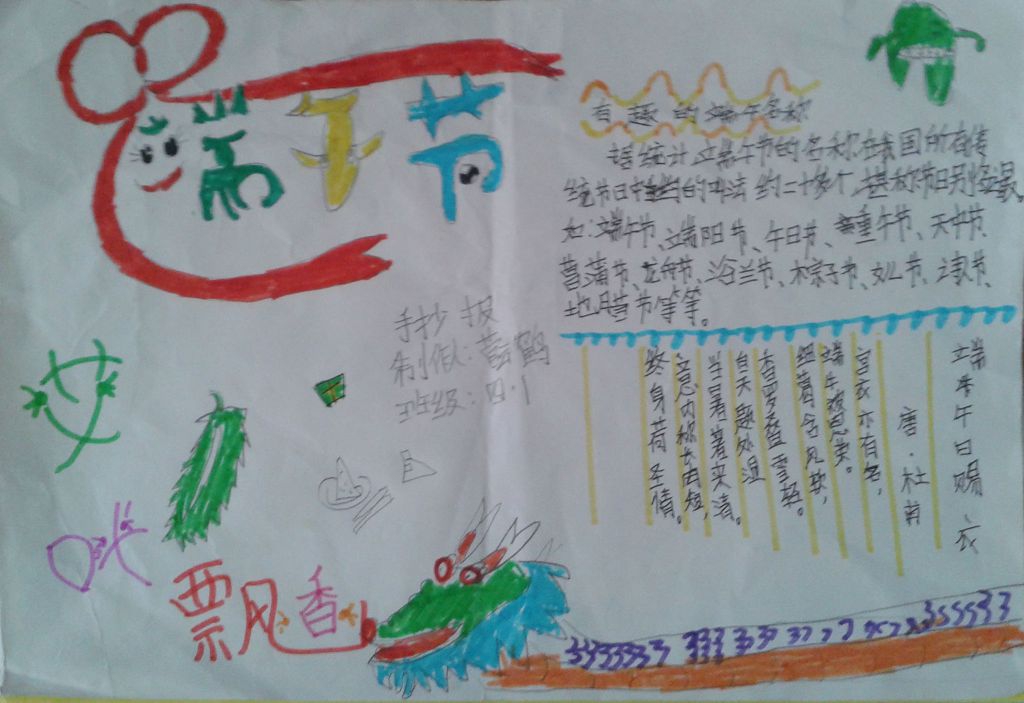 端午节
有趣的端午名称
据统计,端午节的名称在我国所有传
统节日中叫法约二十多个,堪称节日别
如:端午节、端阳节、午日节、重午节、天中节、
菖蒲节、龙舟节、浴兰节、粽子节、女儿节、
地腊节等等。
端午日赐衣
唐·杜甫
宫衣亦有名,
端午被恩荣。
细葛含风软,
香罗叠雪轻。
自天题处湿
当暑著来清。
意内称长短,
终身荷圣情。
手抄报
制作:
班级:四·1
艾
叶
飘香